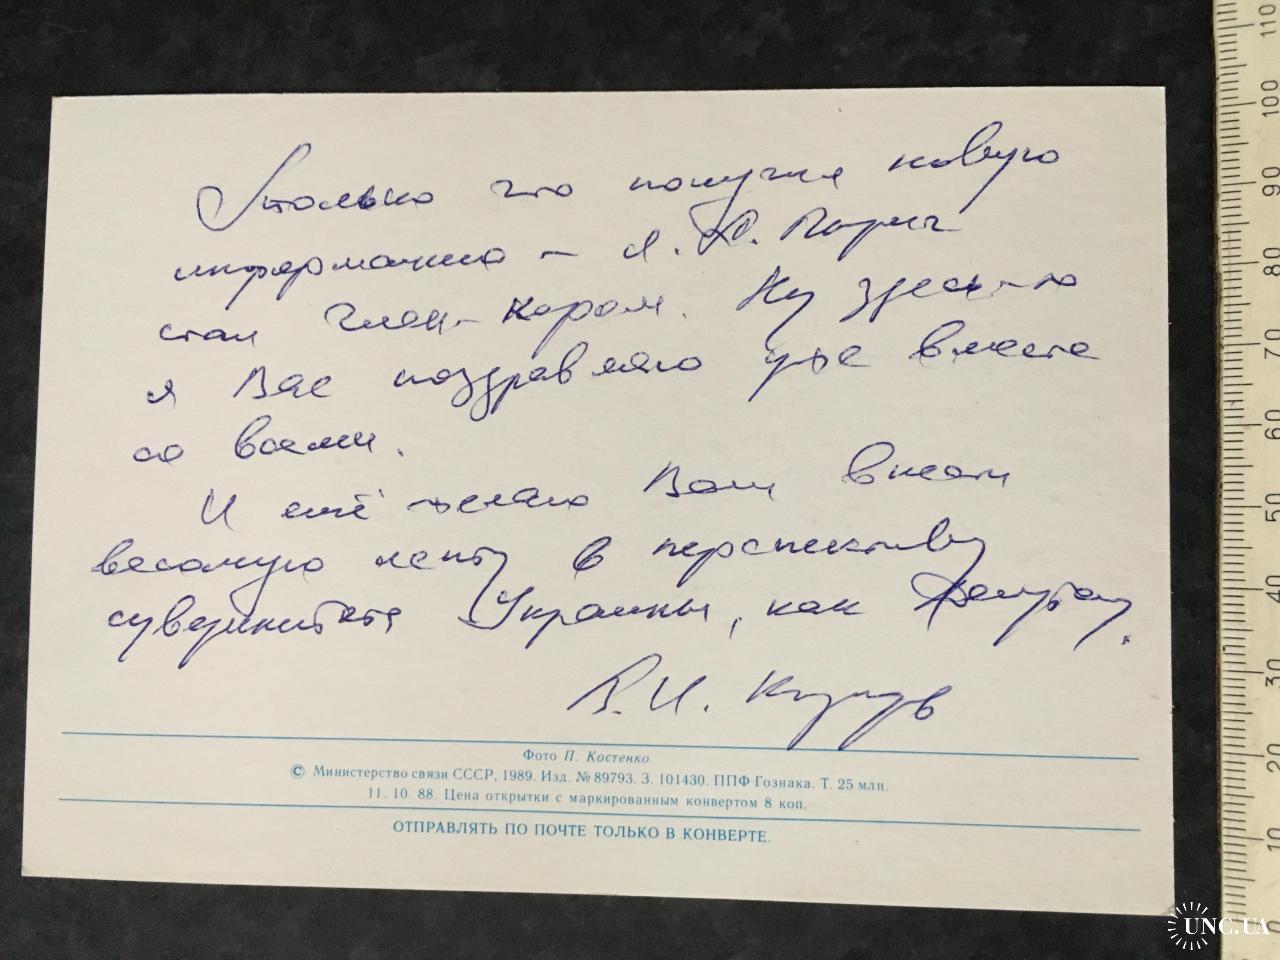 Только что получил новую
информацию – Я. С.
стал член-кором. Ну здесь-то
я Вас поздравляю уже вместе
со всеми.
И ещё желаю Вам внести
весомую лепту в перспективу
суверинитета Украины, как Депутату.
В. И.
Фото П. Костенко
© Министерство связи СССР, 1989. Изд. № 89793. З. 101430. ППФ Гознака. Т. 25 млн.
11. 10. 88. Цена открытки с маркированным конвертом 8 коп.
ОТПРАВЛЯТЬ ПО ПОЧТЕ ТОЛЬКО В КОНВЕРТЕ.
110
100
90
80
70
60
50
40
30
20
10
0
UNC.UA